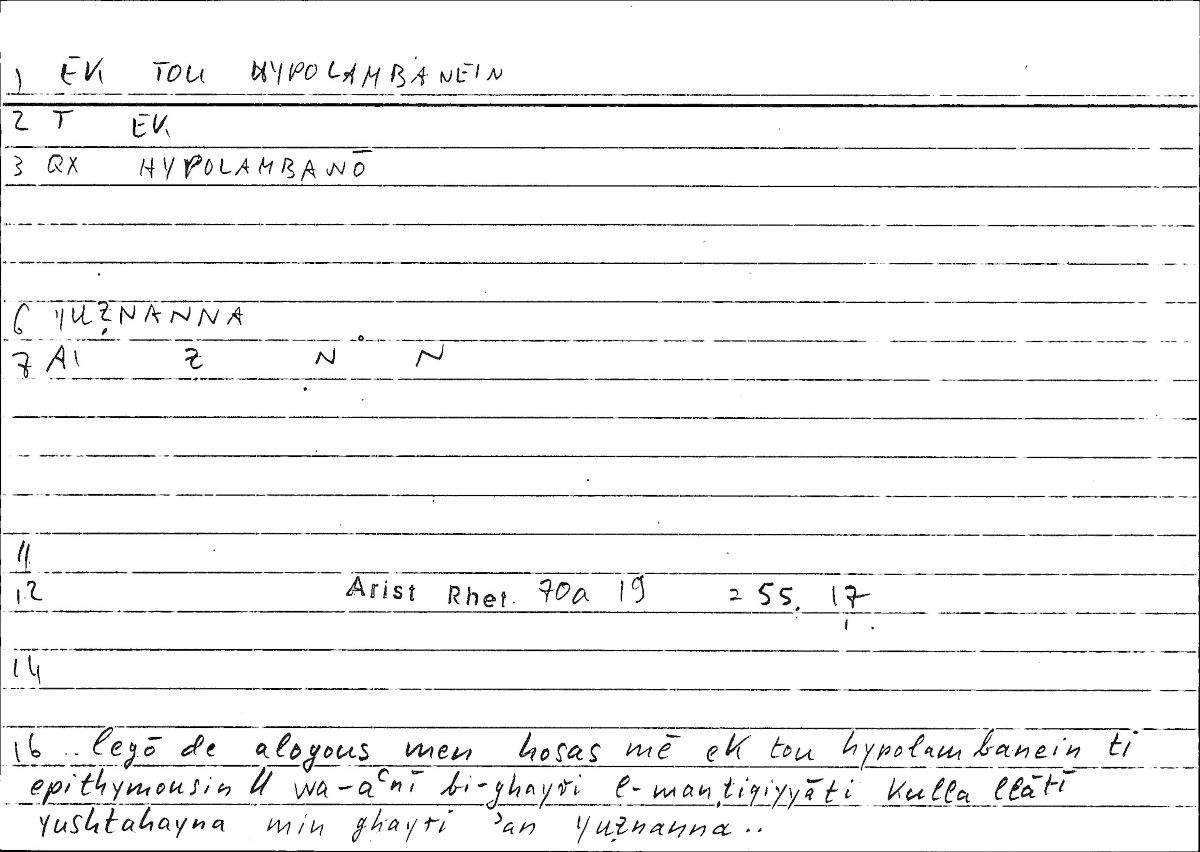 1 EK TOU HYPOLAMBANEIN
2 T EK
3 QX HYPOLAMBANŌ
6 YUẒNANNA
7 A1 Ẓ N N
11
12 Arist Rhet. 70a 19 = 55, 17
14
16 .. legō de alogous men hosas mē ek tou hypolambanein ti
epithymousin // wa-aʿnī bi-ghayri l-manṭiqiyyāti kulla llātī
yushtahayna min ghayri ʾan yuẓnanna..